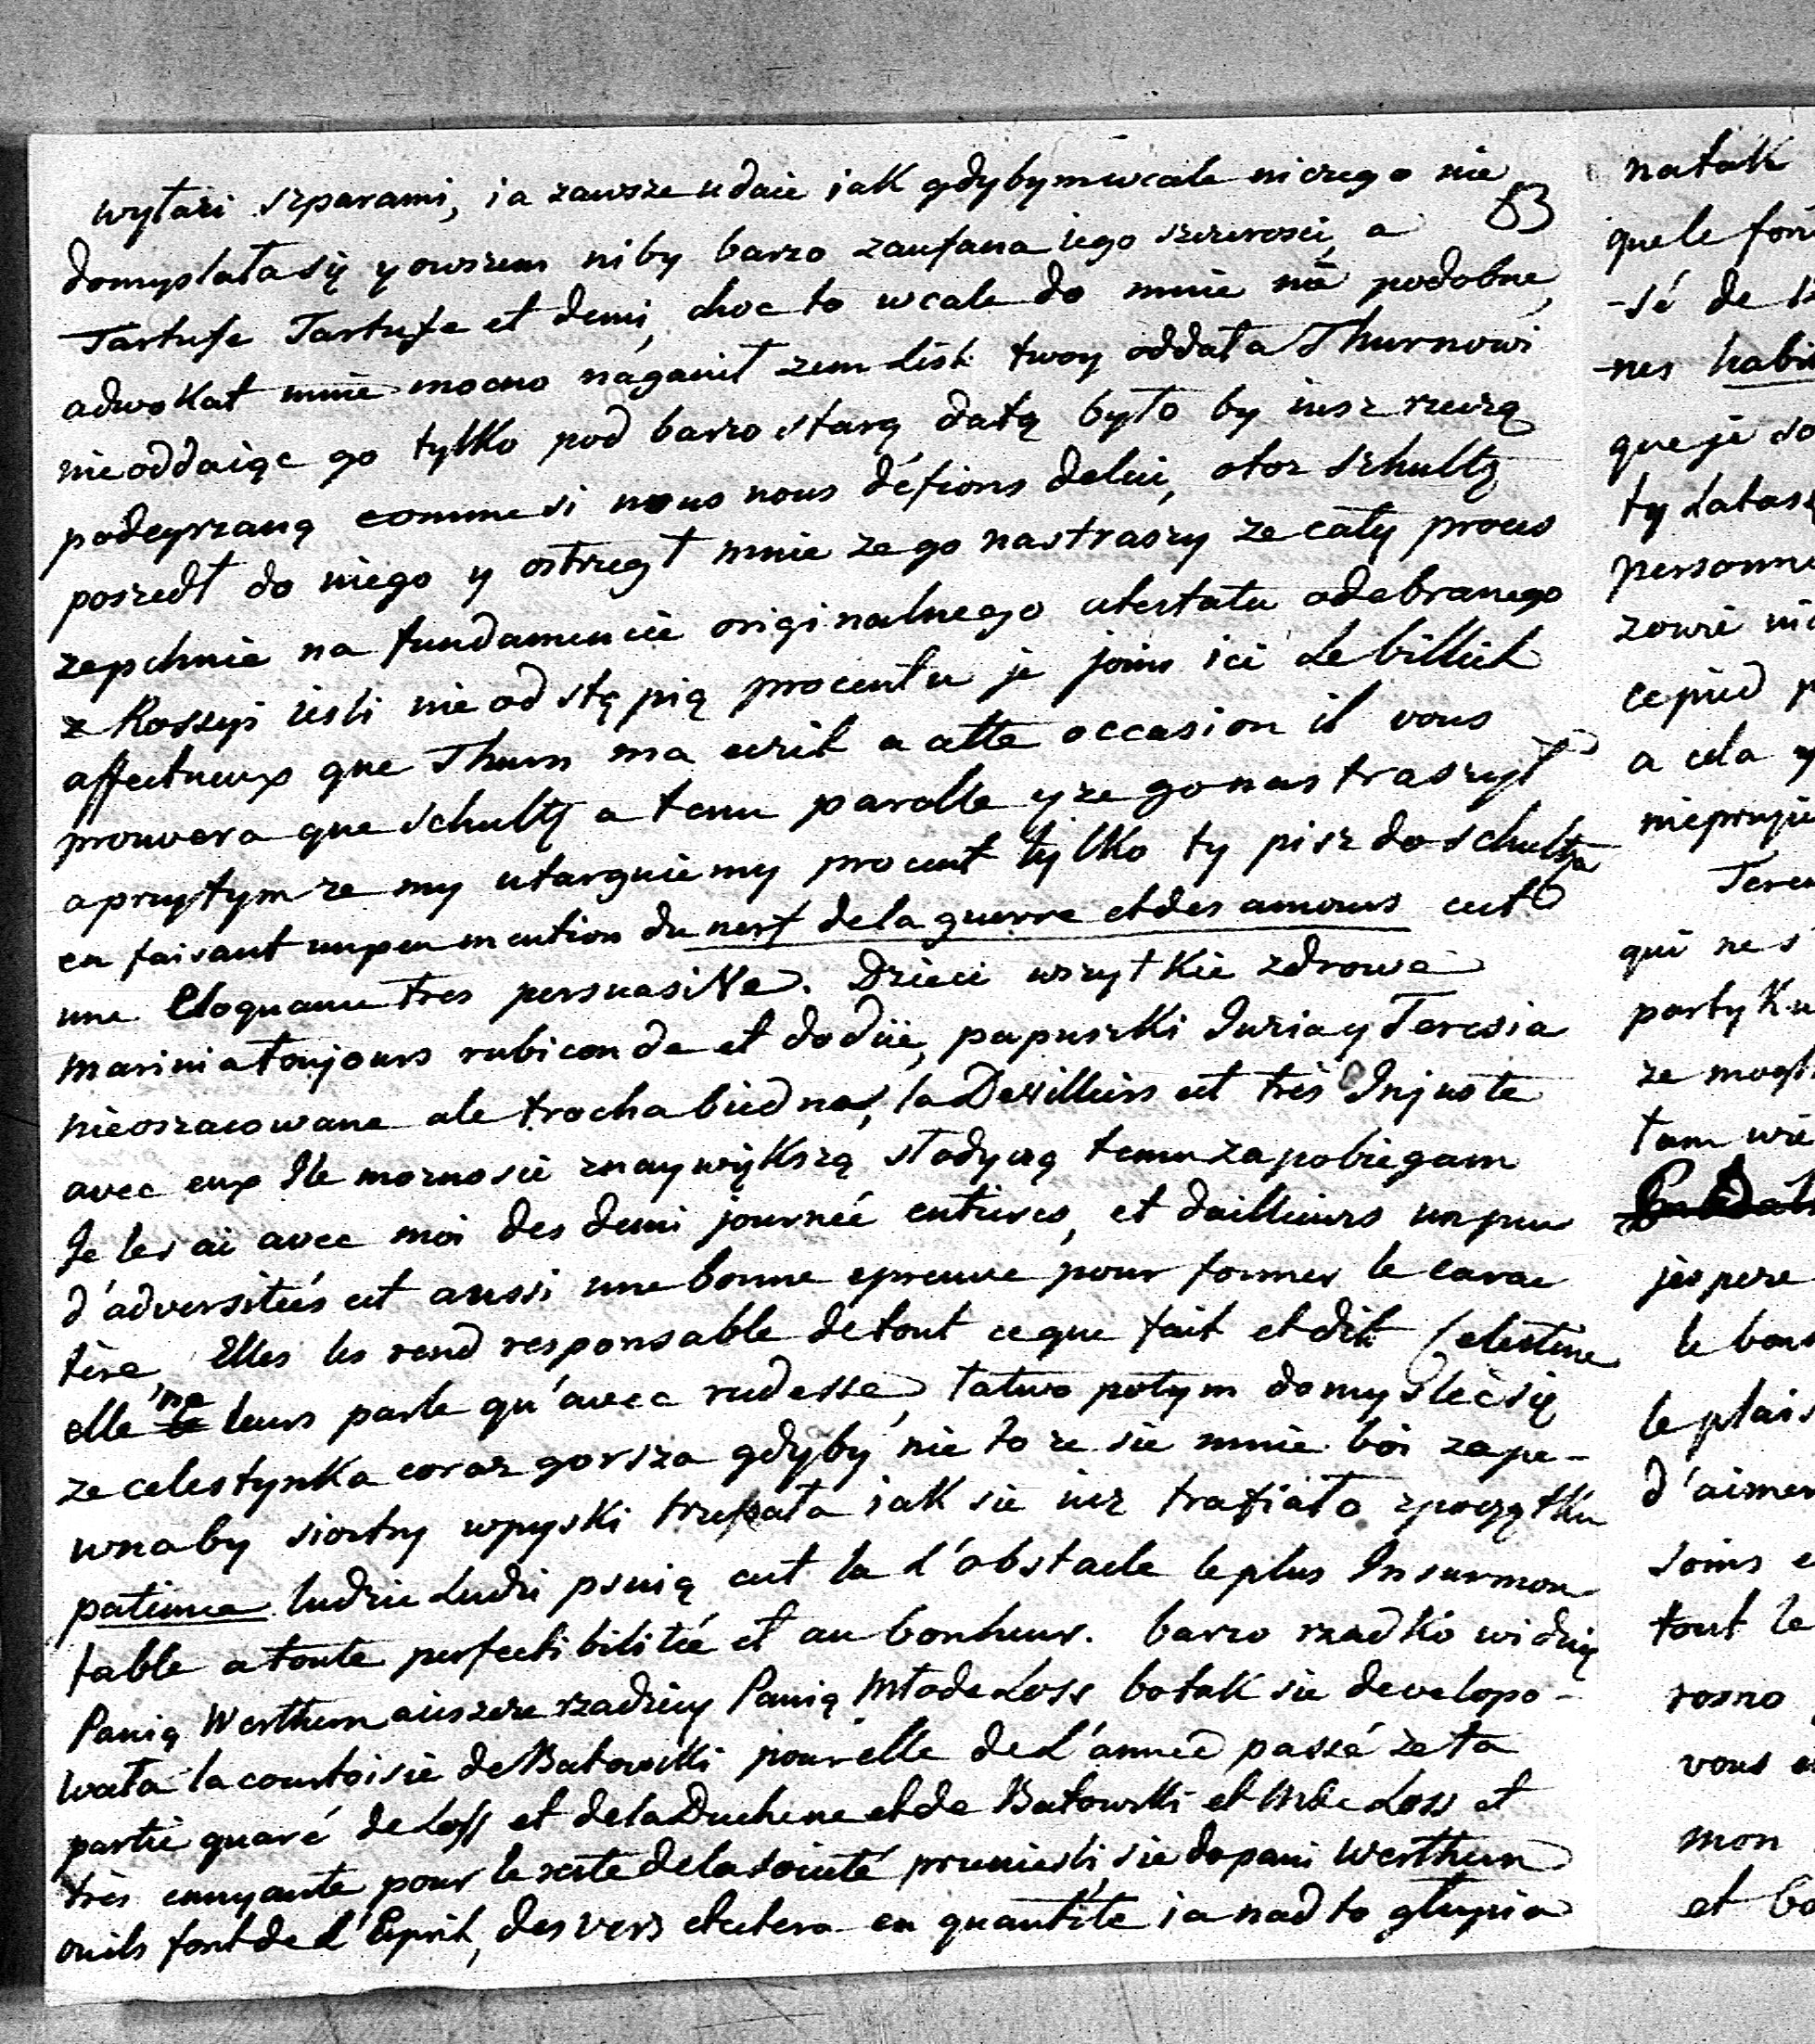 wyłazi szparami, ia zawsze udaie iak gdybym wcale niczego nie
53
domyslała się y owszem niby barzo zaufana iego szczerosci, a
Tartufe Tartufe et demi, choc to wcale do mnie nie podobne,
adwokat mnie mocno naganił zem List twoy oddała Thurnowi
nie oddaiąc go tylko pod barzo starą datą było by insz rzeczą
podeyrzaną comme si nous nous défions de lui, otoz Schultz
poszedł do niego y ostrzegł mnie ze go nastraszy ze cały proces
zepchnie na fundamencie originalnego atestatu odebranego
z Rossyi iesli nie odstąpią procentu je joins ici Le billiet
affectueux que Thurn ma ecrit a cette occasion il vous
prouvera que Schultz a tenu parolle y ze go nastraszył
a przytym ze my utarguiemy procent tylko ty pisz do Schultza
en faisant un peu mention du nerf de la guerre et des amours cest
une Eloquance tres persuasive. Dzieci wszytkie zdrowe
Marinia toujours rubiconde et dodüe, papuszki Juzia y Teresia
nieoszacowane ale trocha biedne, la Devilliers est très Injuste
avec eux Ile moznosci znaywiększą słodyczą temu zapobiegam
Je les ai avec moi des demi journeé entieres, et dailleurs un peu
d'adversiteés est aussi une bonne epreuve pour former le carac
tère, Elles les rend responsable de tout ce que fait et dit Celestine
elle ne leurs parle qu'avec rudesse, łatwo potym domysleć się
ze celestynka coraz gorsza gdyby nie to ze sie mnie boi zape-
wnaby siostry wpyski trzepała iak sie iuz trafiało zpoczątku
patience ludzie Ludzi psuią cest la L'obstacle le plus Insurmon
table a toute perfectibilitée et au bonheur. barzo rzadko widzię
Panią Werthern a ieszcze rzadziey Panią Młode Loss bo tak sie develope-
wała la courtoisie de Batowski pour elle de L'année passé ze ta
partie quaré de Loss et de la Duchene et de Batowski et Mde Loss et
très ennyante pour le reste de la societé przeniesli sie do pani Werthern
ou ils font de L'Esprit, des vers etcetera en quantité ia nad to głupia
natak
que le
-sé de
-nes
que je
ty
personne
zowie
ce pied
a cela
qui ne s
partyku
ze
tam wie
jespere
le bon
le plais
d'aimer
soins e
tout le
rosno
vous
mon
et bo